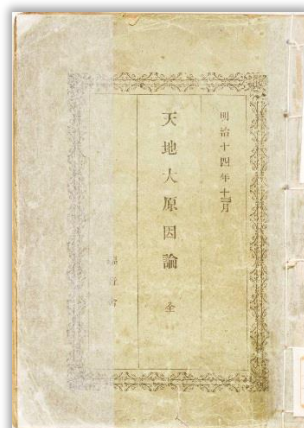 明治十四年十一月
天地大原因論 全